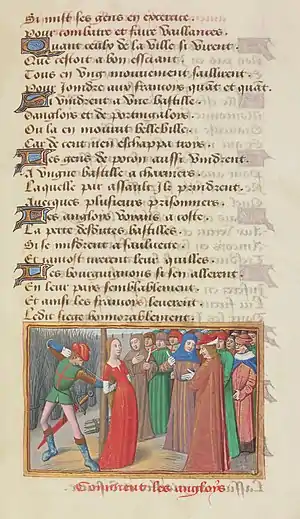 Si mist ses gens en exercice
pour combatre et faire vaillances
Quant ceulx de la ville si virent
Que cestoit a bon essciant
Tous en ung mouvement saillirent
pour joindre aux francoys quāt et quāt
Si vindrent a une bastille
Danglois et de portugaloys
Ou la en mourut belle
Car de cent nen eschappa troys
Les gens de poton aussi vindrent
A ungne bastille a charniers
Laquelle par assault ilz prindrent
Avecques plusieurs prisonniers
Les angloys voyans a coste
La perte desdites bastilles
Si se misdrent a saulvete
Et tantost leurs quilles
Les bourguignons si sen allerent
En leur pays semblablement
Et ainsi les francoys leverent
Ledit siege honnorablement
Comment les angloys